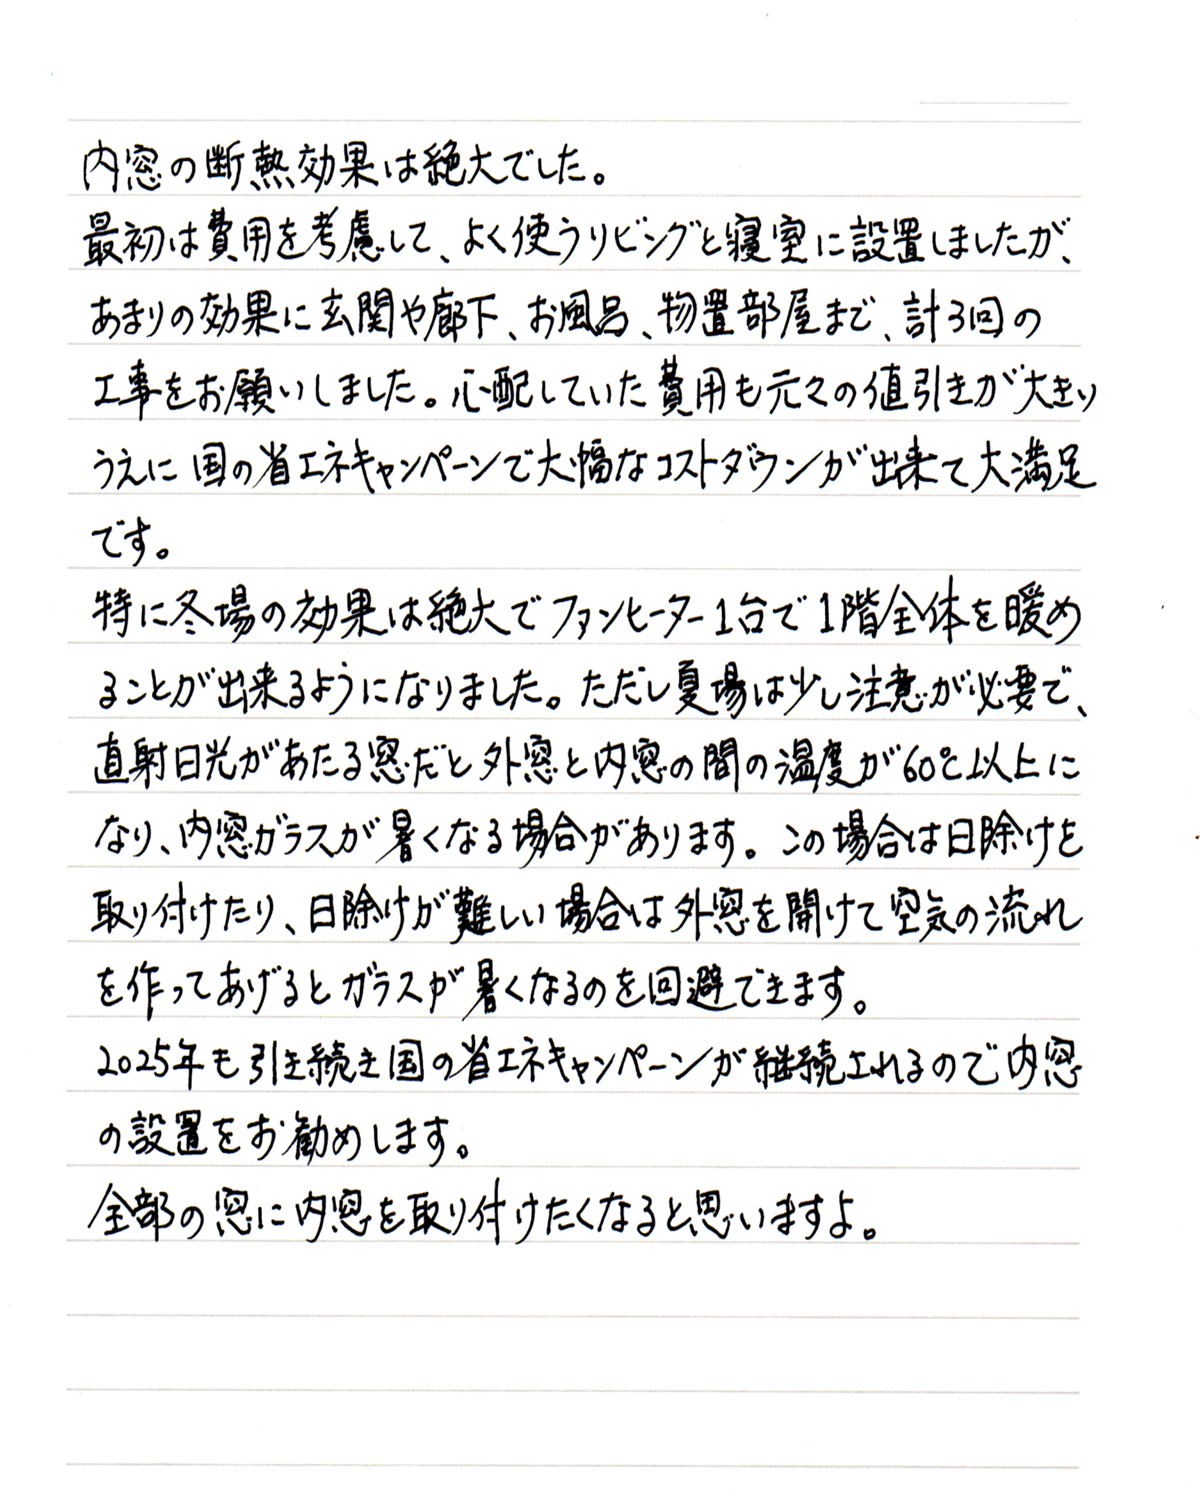 内窓の断熱効果は絶大でした。
最初は費用を考慮して、よく使うリビングと寝室に設置しましたが、
あまりの効果に玄関や廊下、お風呂、物置部屋まで、計3回の
工事をお願いしました。心配していた費用も元々の値引きが大きい
うえに国の省エネキャンペーンで大幅なコストダウンが出来て大満足
です。
特に冬場の効果は絶大でファンヒーター1台で1階全体を暖め
ることが出来るようになりました。ただし夏場は少し注意が必要で、
直射日光があたる窓だと外窓と内窓の間の温度が60℃以上に
なり、内窓ガラスが暑くなる場合があります。この場合は日除けを
取り付けたり、日除けが難しい場合は外窓を開けて空気の流れ
を作ってあげるとガラスが暑くなるのを回避できます。
2025年も引き続き国の省エネキャンペーンが継続されるので内窓
の設置をお勧めします。
全部の窓に内窓を取り付けたくなると思いますよ。